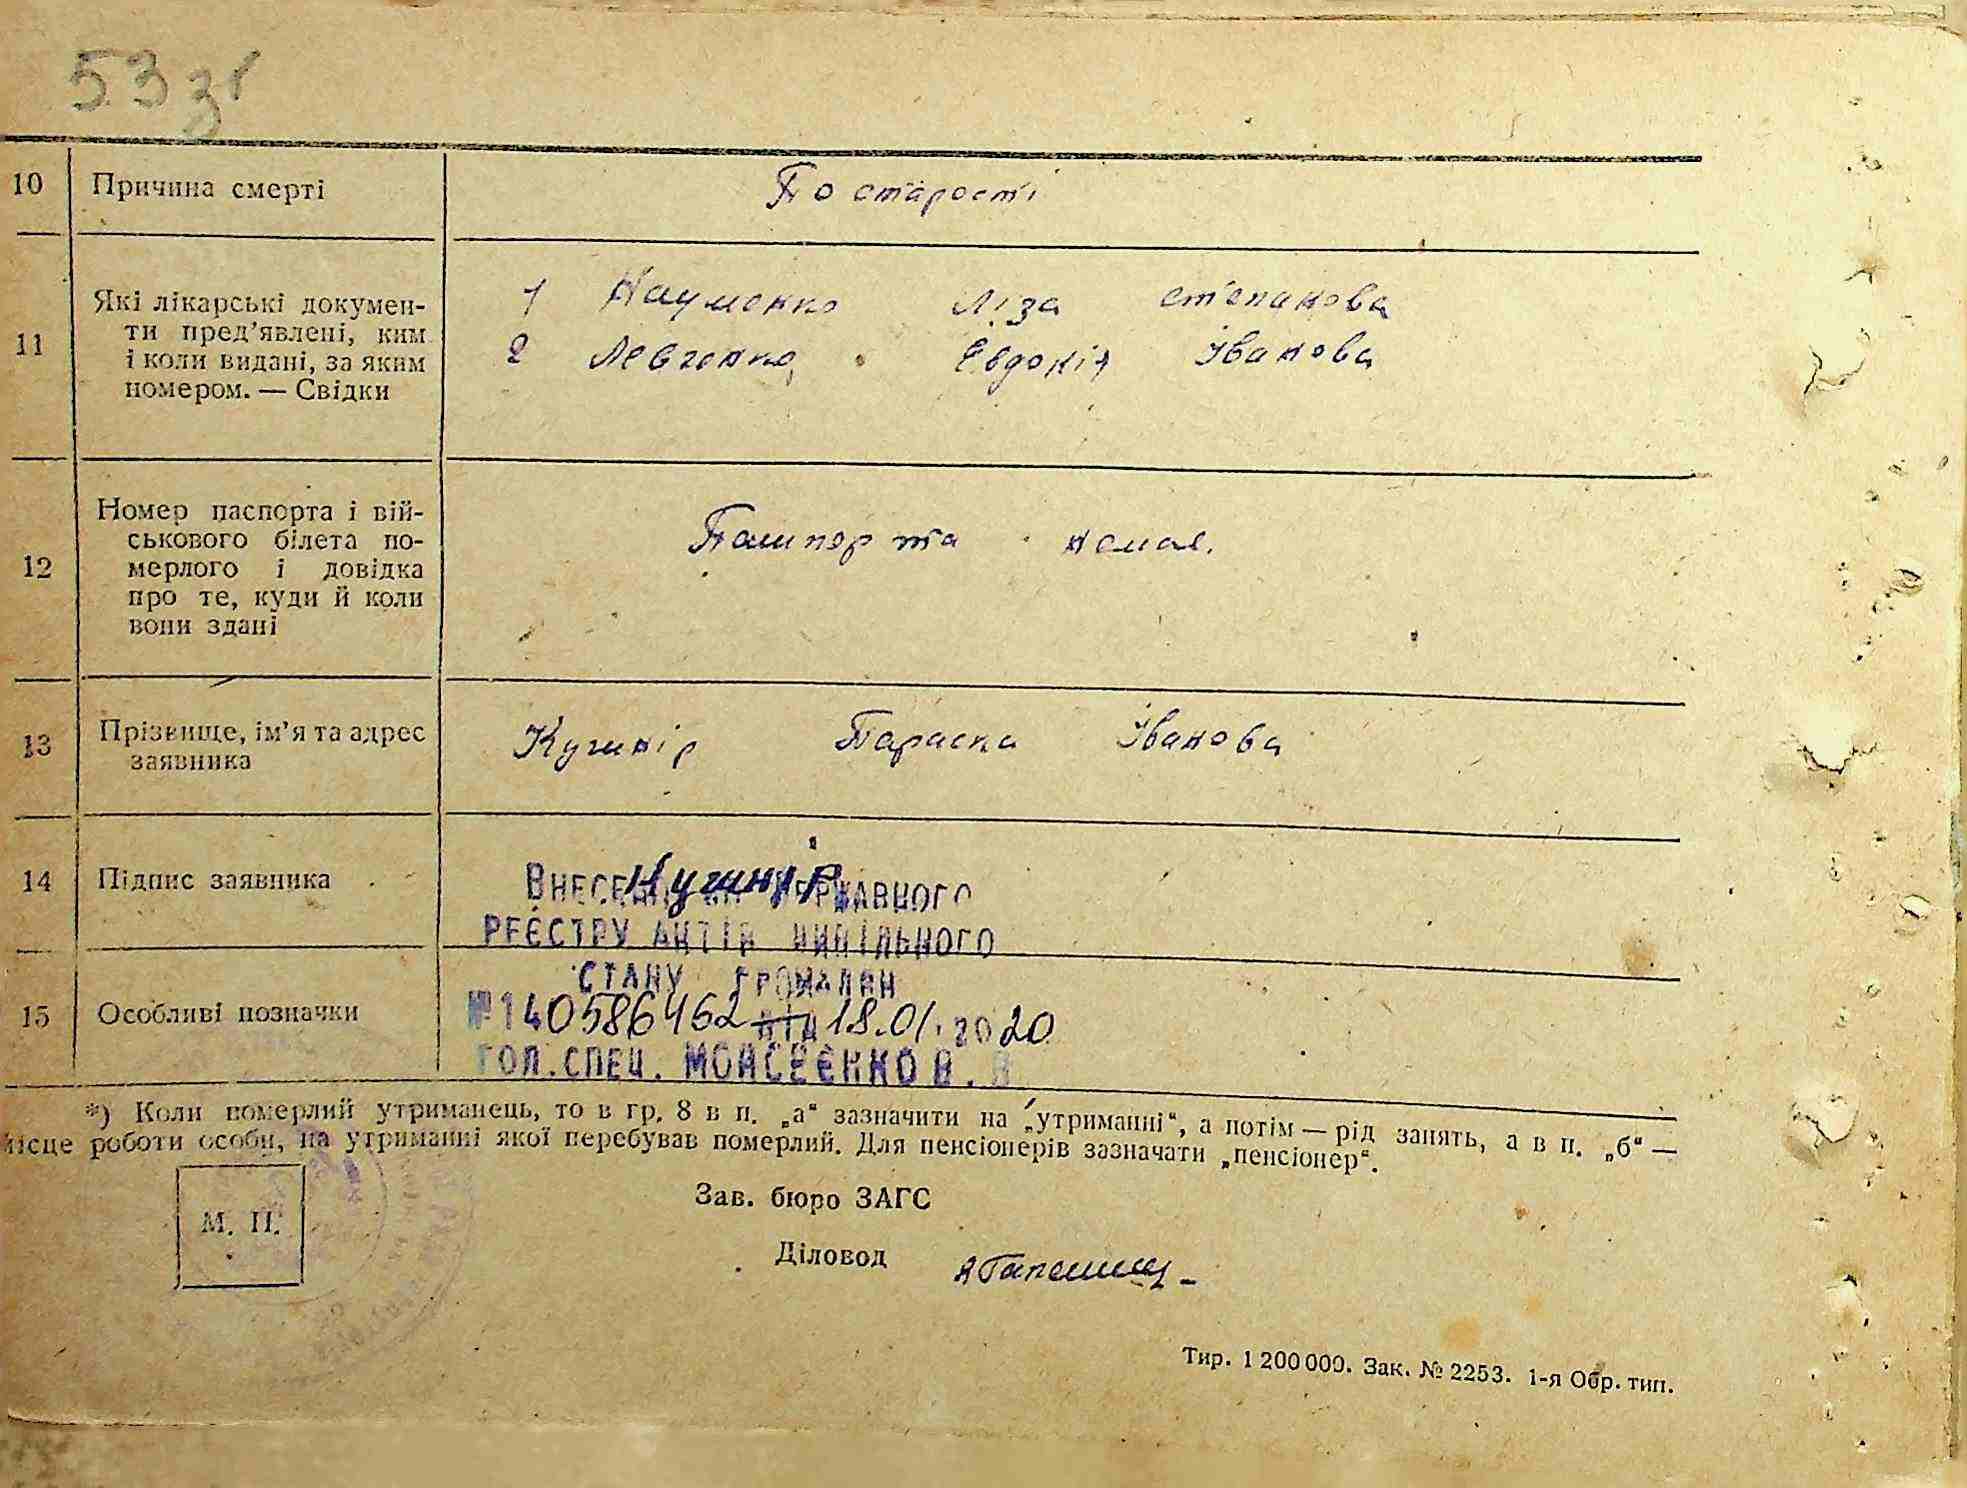 53 зв
10 Причина смерті По старості
11 Які лікарські докумен-
ти пред’явлені, ким
і коли видані, за яким
номером. — Свідки
1 Науменко Ліза степанова
2 Левченко Евдокія Іванова
12 Номер паспорта і вій-
ськового білета по-
мерлого і довідка
про те, куди й коли
вони здані
Пашпорта немає.
13 Прізвище, ім’я та адрес
заявника
Кушнір Параска Іванова
14 Підпис заявника Кушнір
Внесено до Державного
реєстру актів цивільного
стану громадян
15 Особливі позначки
№ 140586462 від 18.01.2020
Гол. спец. Моисеєнко В. В
*) Коли померлий утриманець, то в гр. 8 в п. „а“ зазначити на „утриманні“, а потім — рід занять, а в п. „б“ —
місце роботи особи, на утриманні якої перебував померлий. Для пенсіонерів зазначати „пенсіонер“.
М. П.
Зав. бюро ЗАГС
Діловод
Тир. 1 200 000. Зак. № 2253. 1-я Обр. тип.